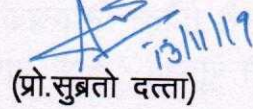 13/11/19
(प्रो.सुब्रतो दत्ता)